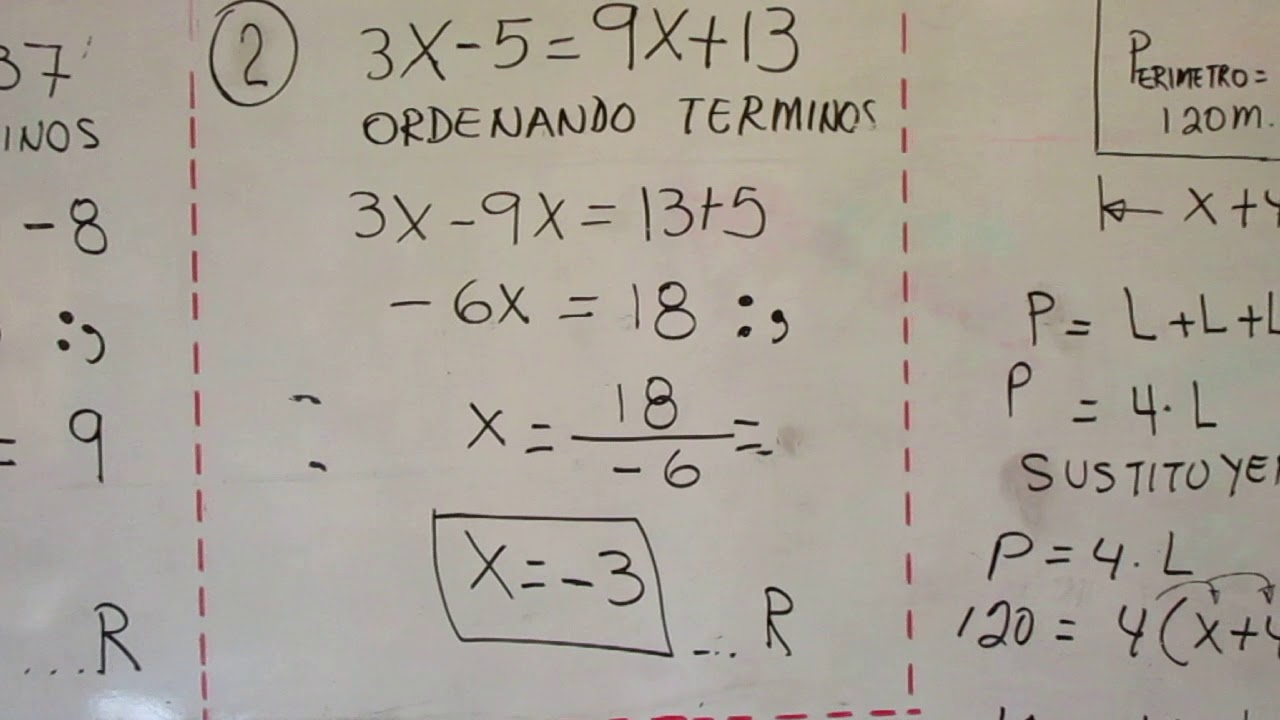 37
INOS
-8
:,
= 9
...R
2
3X-5=9X+13
ORDENANDO TERMINOS
3X-9X=13+5
-6X=18 :,
X=18/-6=
X=-3 ... R
PERIMETRO=
120m.
X+4
P= L+L+L
P=4·L
SUSTITUYE
P=4·L
120=4(X+4